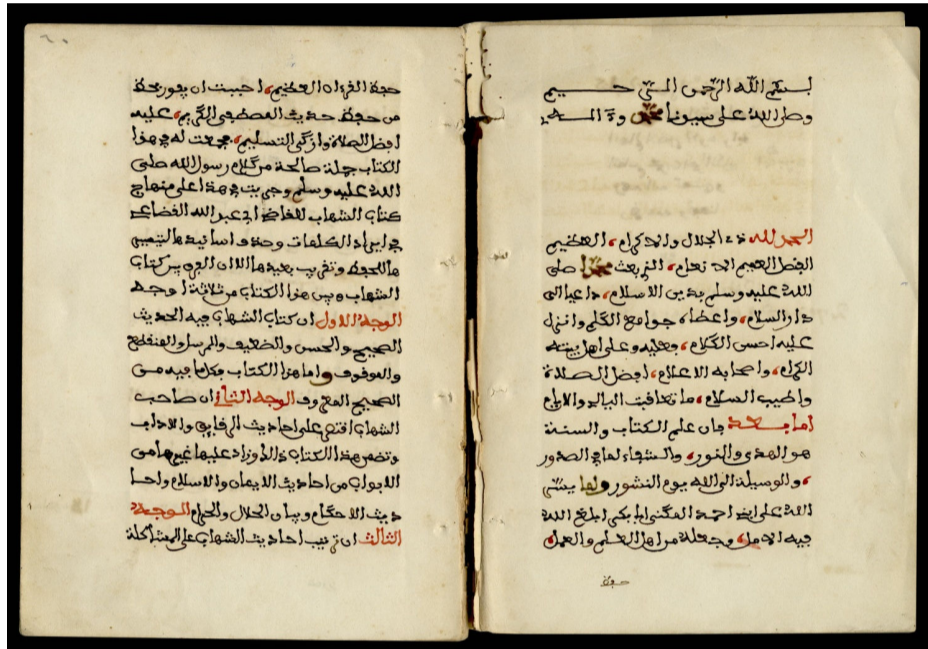 بسم الله الرحمن الرحيم
وصلى الله على سيدنا محمد وءاله
الحمد لله ذى الجلال والاكرام، العظيم
الفضل العميم الانعام، الذى بعث محمدا صلى
الله عليه وسلم بدين الاسلام، داعيا الى
دار السلام، واعطاه جوامع الكلم وانزل
عليه احسن الكلام، فعليه وعلى اهل بيته
الكرام، واصحابه الاعلام، افضل الصلاة
واطيب السلام، ما تعاقبت اليالي والايام
اما بعد فان علم الكتاب والسنة
هو الهدى والنور، والشفاء لما في الصدور
، والوسيلة الى الله يوم النشور ولما يسر
الله على ابنى احمد المكنى ابا بكر ابلغ الله
فيه الامل، وجعله من اهل العلم والعمل،
حفظ
حفظ القرءان العظيم، احببت ان يفوز بحظ
من حفظ حديث المصطفى الكريم، عليه
افضل الصلاة وازكى التسليم، فجمعت له في هذا
الكتاب جملة صالحة من كلام رسول الله صلى
الله عليه وسلم وجريت في هذا على منهاج
كتاب الشهاب للقاضي ابي عبد الله القضاعي
في ايراد الكلمات وحذف اسانيدها لتيسير
ها للحفظ وتقريب بعيدها الا ان الفرق بين كتاب
الشهاب وبين هذا الكتاب من ثلاثة اوجه
الوجه الاول ان كتاب الشهاب فيه الحديث
الصحيح والحسن والضعيف والمرسل والمنقطع
والموقوف واما هذا الكتاب فكل ما فيه من
الصحيح المعروف الوجه الثاني ان صاحب
الشهاب اقتصر على احاديث الرقايق والاداب
وتضمن هذا الكتاب ذالك وزاد عليها غيرها من
الابواب من احاديث الايمان والاسلام واحا
ديث الاحكام وبيان الحلال والحرام الوجه
الثالث ان ترتيب احاديث الشهاب على المشاكلة